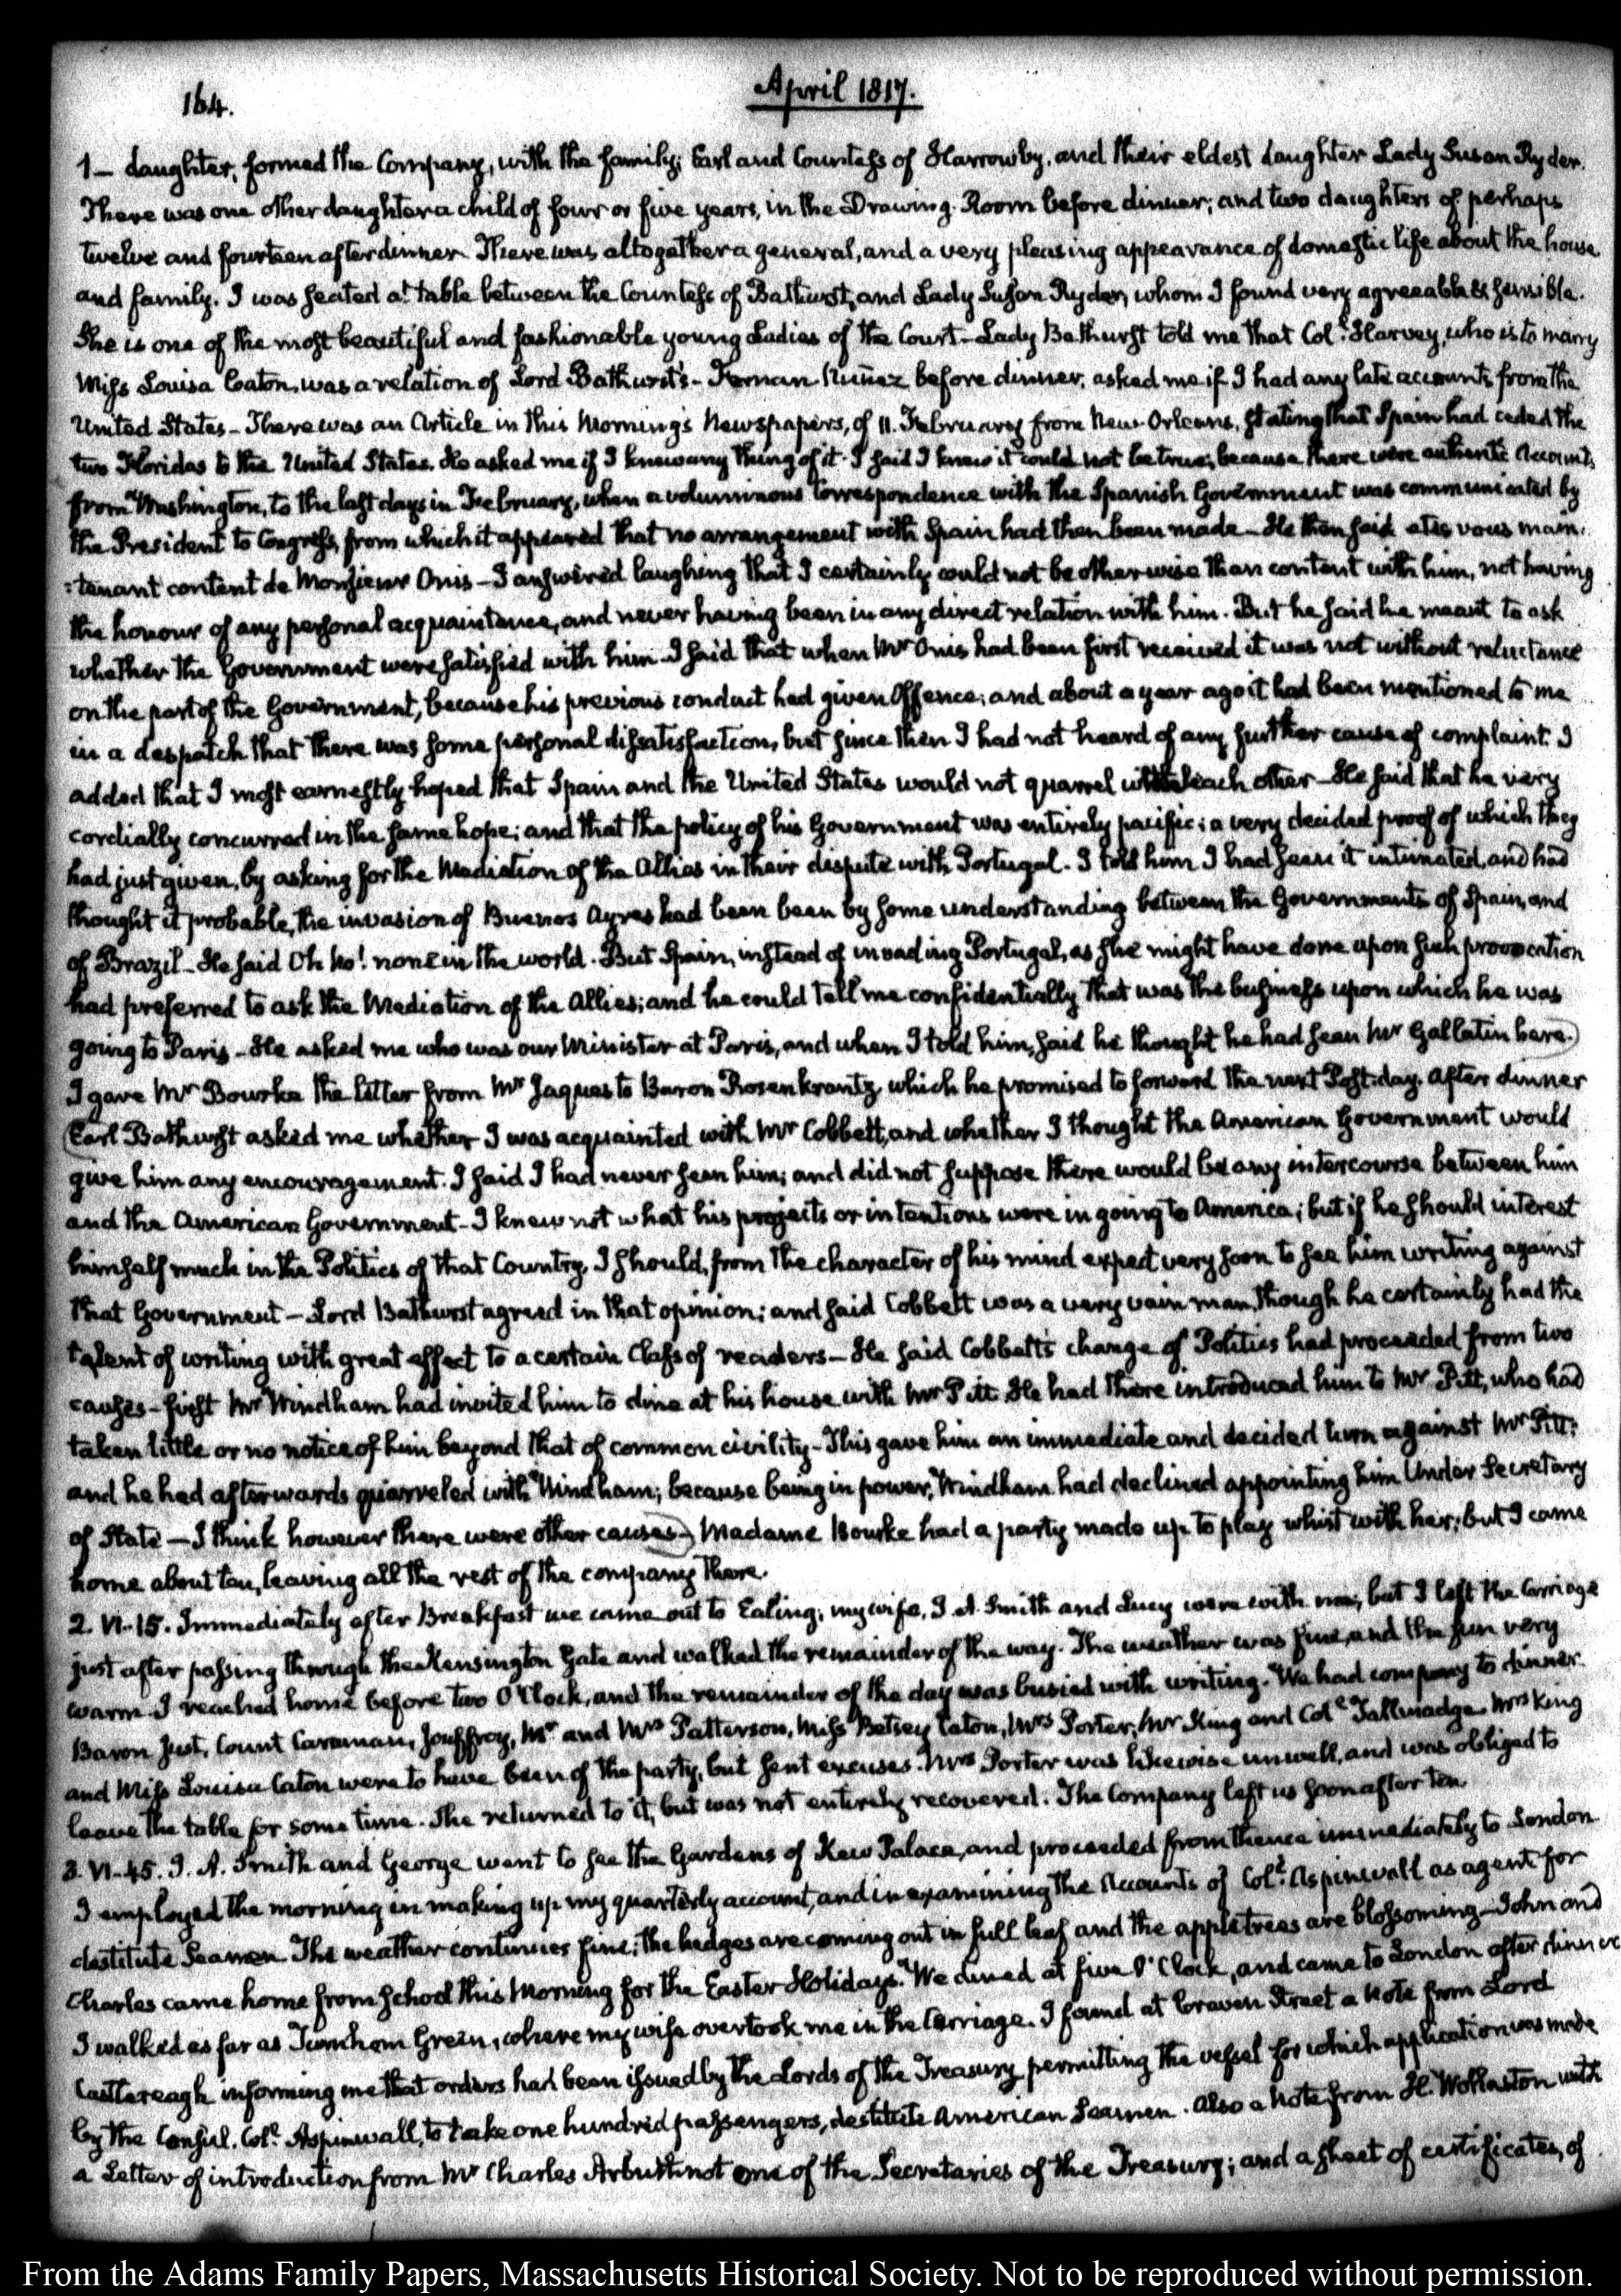 164.
April 1817.
1 — daughter, formed the Company, with the family; Earl and Countess of Harrowby, and their eldest daughter Lady Susan Ryder.
There was one other daughter a child of four or five years, in the Drawing-Room before dinner; and two daughters of perhaps
twelve and fourteen after dinner. There was altogether a general, and a very pleasing appearance of domestic life about the house
and family. I was seated at table between the Countess of Bathurst, and Lady Susan Ryder, whom I found very agreeable & sensible.
She is one of the most beautiful and fashionable young Ladies of the Court — Lady Bathurst told me that Coll. Harvey, who is to marry
Miss Louisa Caton, was a relation of Lord Bathurst's — Fernan Nuñez before dinner, asked me if I had any late accounts from the
United States — There was an Article in this Morning's Newspapers, of 11. February from New-Orleans, stating that Spain had ceded the
two Floridas to the United States. He asked me if I knew any thing of it. I said I knew it could not be true; because there were authentic Accounts
from Washington, to the last days in February, when a voluminous Correspondence with the Spanish Government was communicated by
the President to Congress, from which it appeared that no arrangement with Spain had then been made — He then said etes vous main-
:tenant content de Monsieur Onis — I answered laughing that I certainly could not be otherwise than content with him, not having
the honour of any personal acquaintance, and never having been in any direct relation with him. But he said he meant to ask
whether the Government were satisfied with him — I said that when Mr Onis had been first received it was not without reluctance
on the part of the Government, because his previous conduct had given Offence; and about a year ago it had been mentioned to me
in a despatch that there was some personal dissatisfaction, but since then I had not heard of any further cause of complaint. I
added that I most earnestly hoped that Spain and the United States would not quarrel with each other — He said that he very
cordially concurred in the same hope; and that the policy of his Government was entirely pacific; a very decided proof of which they
had just given, by asking for the Mediation of the Allies in their dispute with Portugal. I told him I had seen it intimated, and had
thought it probable, the invasion of Buenos Ayres had been been by some understanding between the Governments of Spain, and
of Brazil — He said Oh No! none in the world. But Spain, instead of invading Portugal, as she might have done upon such provocation
had preferred to ask the Mediation of the Allies; and he could tell me confidentially that was the business upon which he was
going to Paris — He asked me who was our Minister at Paris, and when I told him, said he thought he had seen Mr Gallatin here.)
I gave Mr Bourke the letter from Mr Jaques to Baron Rosenkrantz, which he promised to forward the next Post-day. After dinner
(Earl Bathurst asked me whether I was acquainted with Mr Cobbett, and whether I thought the American Government would
give him any encouragement. I said I had never seen him; and did not suppose there would be any intercourse between him
and the American Government — I knew not what his projects or intentions were in going to America; but if he should interest
himself much in the Politics of that Country, I should, from the character of his mind expect very soon to see him writing against
that Government — Lord Bathurst agreed in that opinion; and said Cobbett was a very vain man, though he certainly had the
talent of writing with great effect to a certain Class of readers — He said Cobbett's change of Politics had proceeded from two
causes — first Mr Windham had invited him to dine at his house with Mr Pitt. He had there introduced him to Mr Pitt, who had
taken little or no notice of him beyond that of common civility — This gave him an immediate and decided turn against Mr Pitt:
and he had afterwards quarreled with Windham; because being in power, Windham had declined appointing him Under Secretary
of State — I think however there were other causes —) Madame Bourke had a party made up to play whist with her; but I came
home about ten, leaving all the rest of the company there.
2. VI-15. Immediately after Breakfast we came out to Ealing; my wife, J. A. Smith and Lucy were with me; but I left the Carriage
just after passing through the Kensington Gate and walked the remainder of the way. The weather was fine, and the sun very
warm. I reached home before two O'Clock, and the remainder of the day was busied with writing. We had company to dinner.
Baron Just, Count Caraman, Jouffroy, Mr and Mrs Patterson, Miss Betsey Caton, Mrs Porter, Mr King and Coll. Tallmadge. Mrs King
and Miss Louisa Caton were to have been of the party, but sent excuses. Mrs Porter was likewise unwell, and was obliged to
leave the table for some time. She returned to it, but was not entirely recovered. The Company left us soon after ten.
3. VI-45. J. A. Smith and George went to see the Gardens of Kew Palace, and proceeded from thence immediately to London
I employed the morning in making up my quarterly account, and in examining the Accounts of Coll. Aspinwall as agent for
destitute Seamen. The weather continues fine; the hedges are coming out in full leaf and the apple trees are blossoming — John and
Charles came home from School this Morning for the Easter Holidays. We dined at five O'Clock, and came to London after dinner
I walked as far as Turnham Green, where my wife overtook me in the Carriage. I found at Craven Street a Note from Lord
Castlereagh informing me that orders had been issued by the Lords of the Treasury permitting the vessel for which application was made
by the Consul, Coll. Aspinwall, to take one hundred passengers, destitute American Seamen. Also a Note from H. Wollaston with
a Letter of introduction from Mr Charles Arbuthnot one of the Secretaries of the Treasury; and a sheet of certificates, of
From the Adams Family Papers, Massachusetts Historical Society. Not to be reproduced without permission.